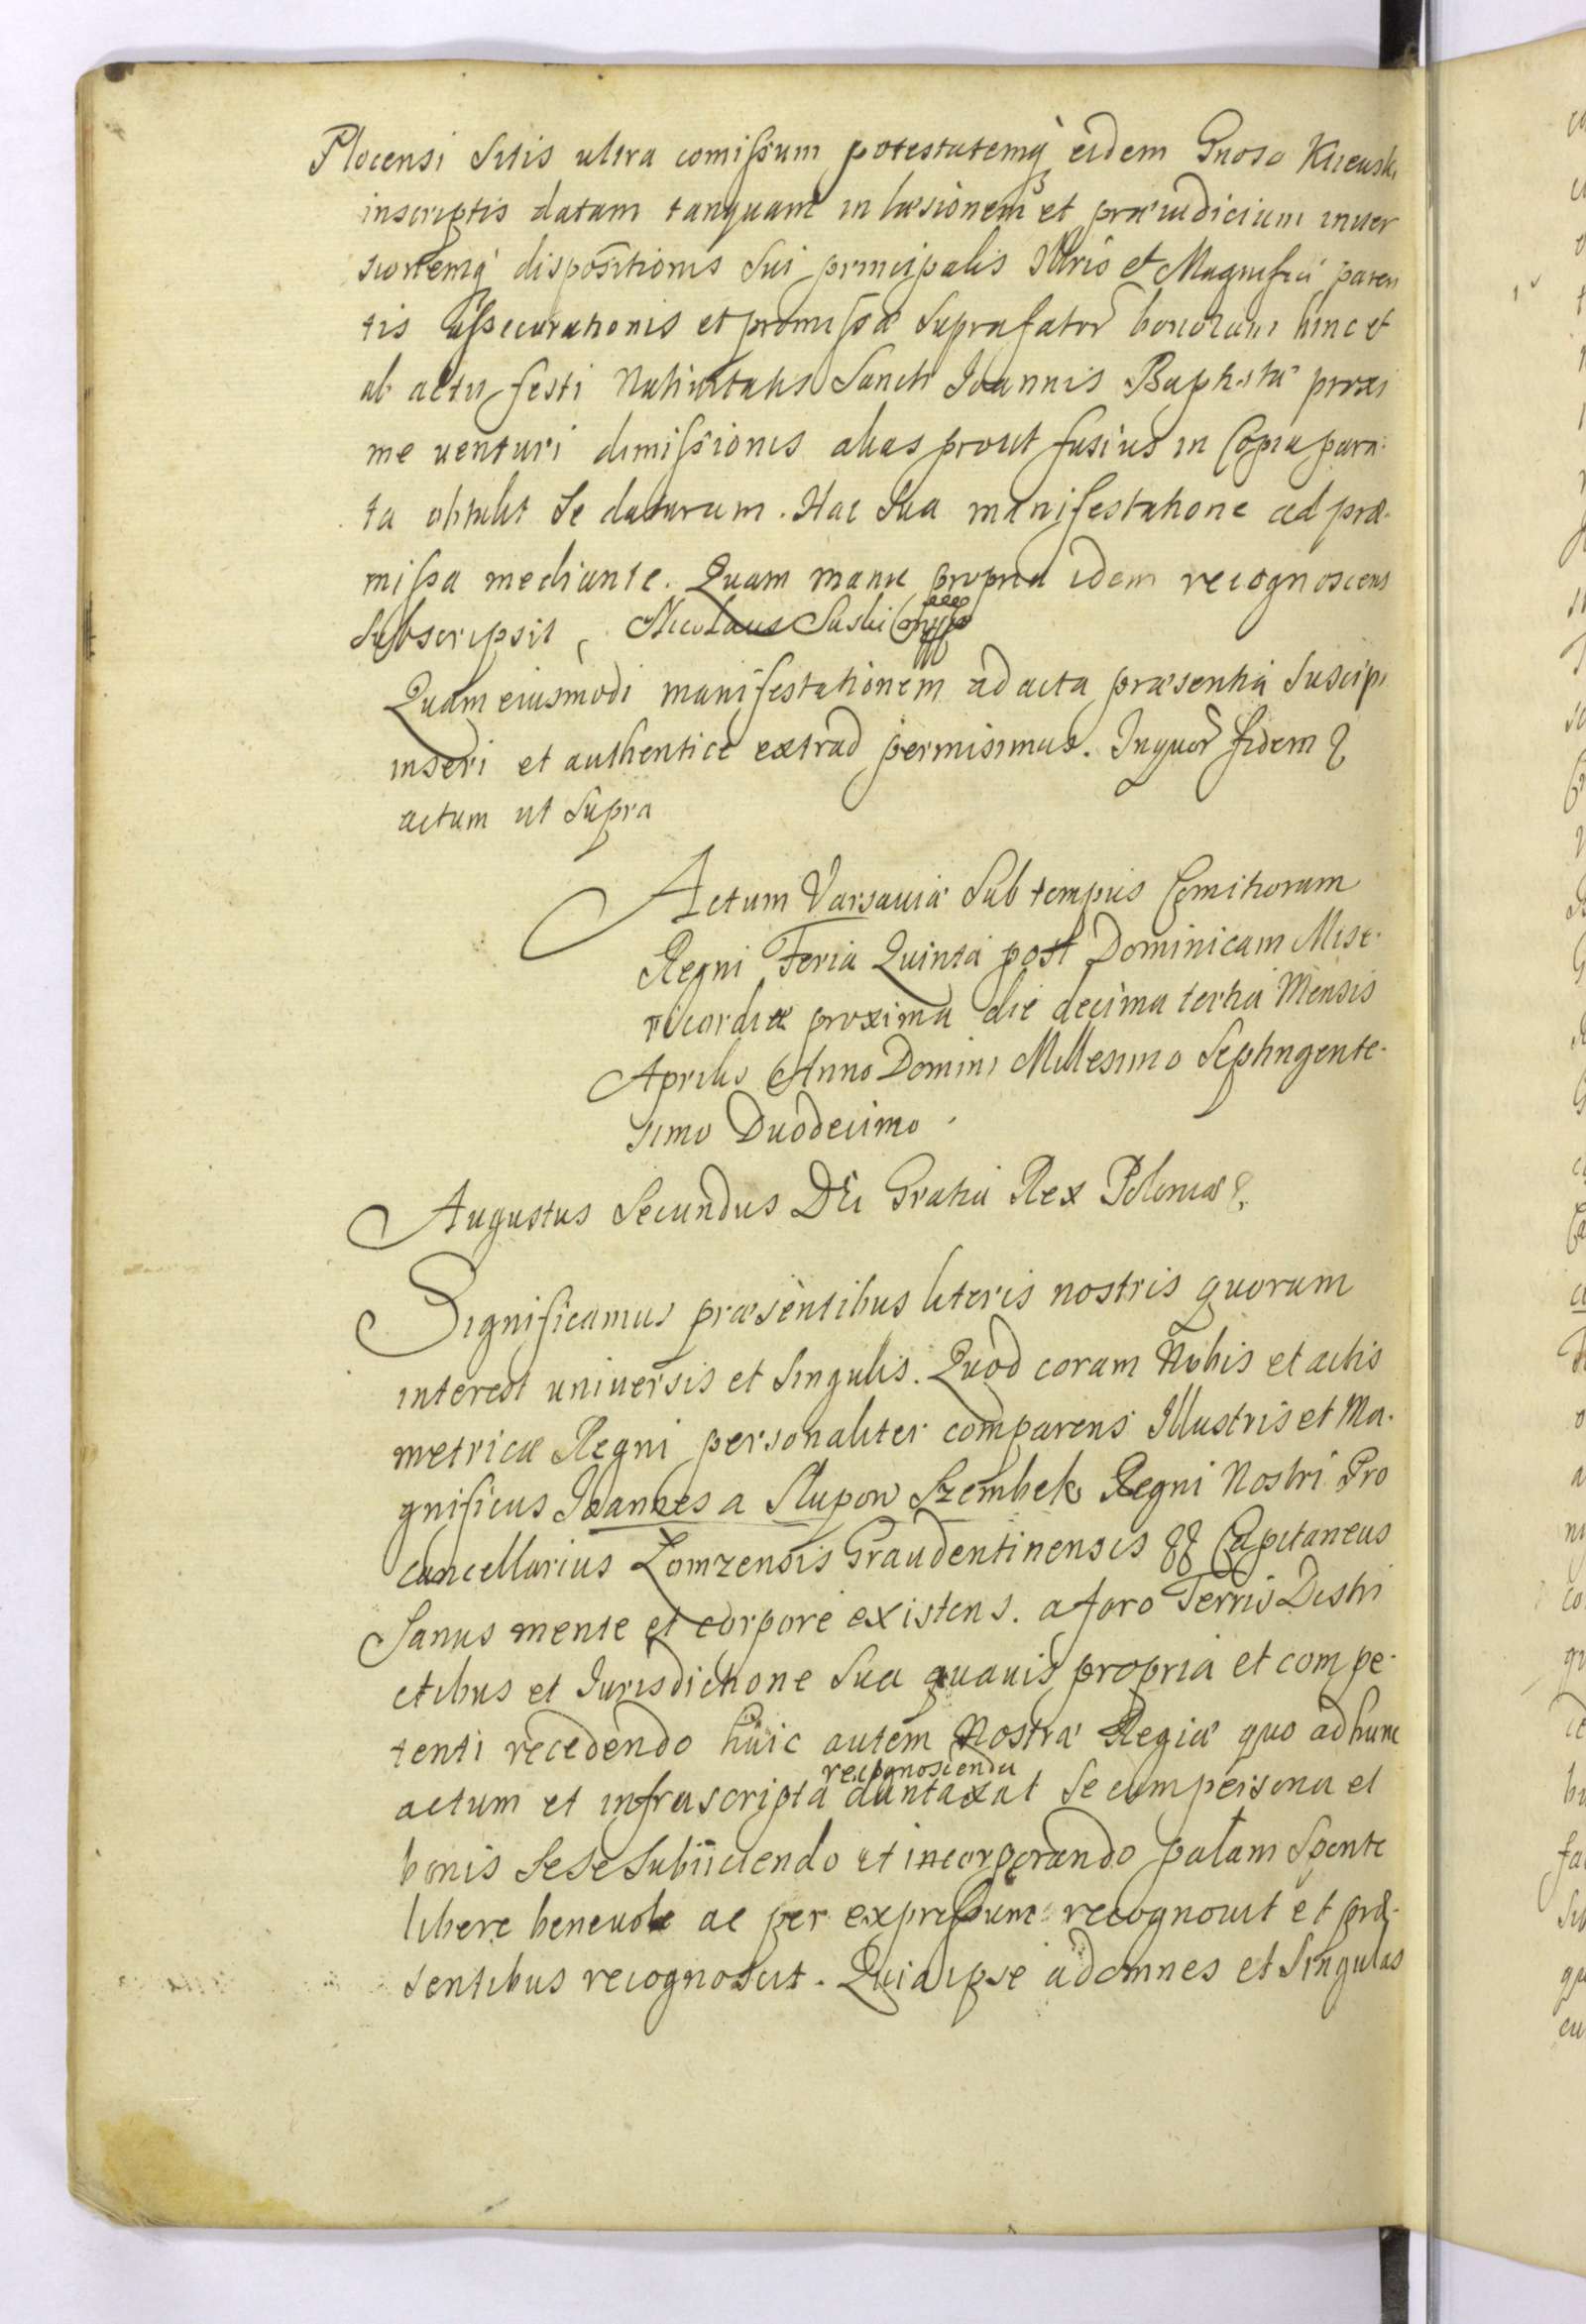 Plocensi sitis ultra comissum potestatemq eidem Gnoso Kiieuski
inscriptis datam tanquam in læsionem et præiudicium inuer
sionemq dispositionis sui principalis Illris et Magnifici paren
tis assecurationis et promissæ suprafator bonorum hinc et
ab actu festi Natiuitatis Sancti Joannis Baptistæ proxi
me venturi dimissionis alias prout fusius in Copia para-
ta obtulit se daturum. Hac sua manifestatione ad præ-
missa mediante. Quam manu propria idem recognoscens
subscripsit, Nicolaus Suski mpp
Quam eiusmodi manifestationem ad acta præsentia suscipi
inseri et authentice extrad permisimus. Inquor fidem &
actum ut supra
Actum Varsauiæ sub tempus Comitiorum
Regni Feria Quinta post Dominicam Mise-
ricordiæ proxima die decima tertia Mensis
Aprilis Anno Domini Millesimo Septingente-
simo Duodecimo.
Augustus Secundus DEi Gratia Rex Poloniæ &
Significamus præsentibus literis nostris quorum
interest universis et singulis. Quod coram Nobis et actis
metricæ Regni personaliter comparens Illustris et Ma-
gnificus Joannes a Slupow Szembek Regni Nostri Pro
cancellarius Lomzensis Graudentinensis && Capitaneus
Sanus mente et corpore existens. a foro Terris Distri
ctibus et Jurisdictione sua quavis propria et compe-
tenti recedendo huic autem Nostræ Regiæ quo ad hunc
actum et infrascripta recognoscenda duntaxat se cum persona et
bonis sese subiiciendo et incorporando palam sponte
libere benevole ac per expressum recognouit et præ-
sentibus recognoscit. Quia ipse ad omnes et singulas